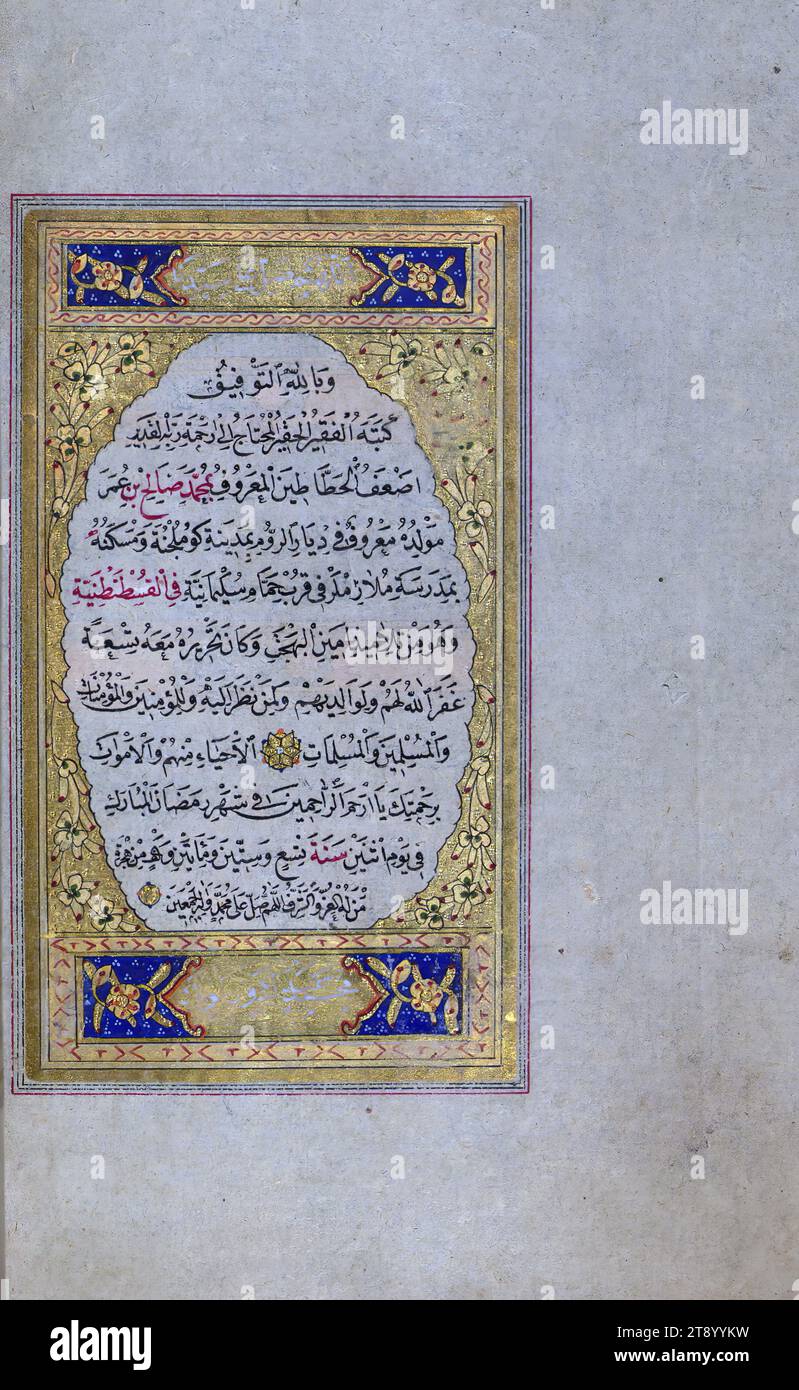 وَبِاللّٰهِ التَّوْفِيقُ
كَتَبَهُ الْفَقِيرُ الْحَقِيرُ الْمُحْتَاجُ إِلَى رَحْمَةِ رَبِّهِ الْقَدِيرِ
اَضْعَفُ الْخَطَّاطِينَ الْمَعْرُوفُ بِمُحَمَّدْ صَالِحْ بْنِ عُمَرَ
مَوْلِدُهُ مَعْرُوفٌ فِي دِيَارِ الرُّومِ بِمَدِينَةِ كُومُلْجِنَةَ وَمَسْكَنُهُ
بِمَدْرَسَةِ فِي قُرْبِ وَسُلَيْمَانِيَّةِ فِي الْقُسْطَنْطِنِيَّةِ
وَهُوَ مِنْ تَلَامِيذِ اَمِينِ الْبَهْجَتِ وَكَانَ تَحْرِيرُهُ مَعَهُ تِسْعَةً
غَفَرَ اللّٰهُ لَهُمْ وَلِوَالِدِيهِمْ وَلِمَنْ نَظَرَ اِلَيْهِ وَلِلْمُؤْمِنِينَ وَالْمُؤْمِنَاتِ
وَالْمُسْلِمِينَ وَالْمُسْلِمَاتِ الْاَحْيَاءِ مِنْهُمْ وَالْاَمْوَاتِ
بِرَحْمَتِكَ يَا اَرْحَمَ الرَّاحِمِينَ فِي شَهْرِ رَمَضَانَ الْمُبَارَكِ
فِي يَوْمِ اثْنَيْنِ سَنَةَ تِسْعٍ وَسِتِّينَ وَمِائَتَيْنِ مِنْ هِجْرَةِ
مَنْ لَهُ الْعِزُّ وَالشَّرَفُ اللّٰهُمَّ صَلِّ عَلَى مُحَمَّدٍ وَآلِهِ اَجْمَعِينَ
alamy
Image ID: 2T8YYKW
www.alamy.com